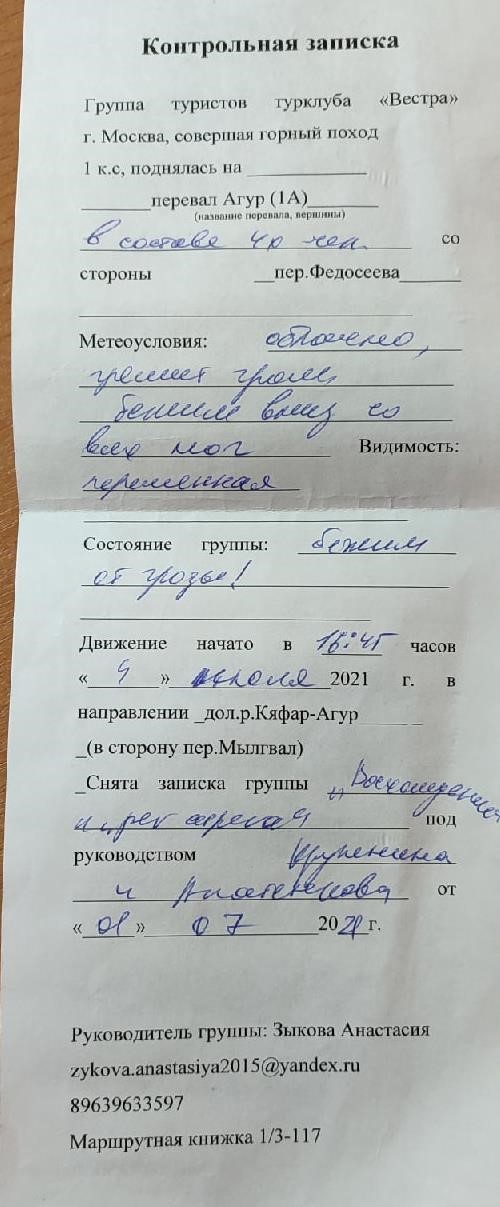 Контрольная записка
Группа туристов турклуба «Вестра»
г. Москва, совершая горный поход
1 к.с, поднялась на
перевал Агур (1А)
(название перевала, вершины)
в составе 4х чел. со
стороны пер.Федосеева
Метеоусловия: облачно,
гремит гром,
бежим вниз со
всех ног Видимость:
переменная
Состояние группы: бежим
от грозы!
Движение начато в 15:45 часов
« 4 » июля 2021 г. в
направлении _дол.р.Кяфар-Агур
_(в сторону пер.Мылгвал)
_Снята записка группы „Восхождения
и под
руководством
и от
«01» 07 2021г.
Руководитель группы: Зыкова Анастасия
zykova.anastasiya2015@yandex.ru
89639633597
Маршрутная книжка 1/3-117